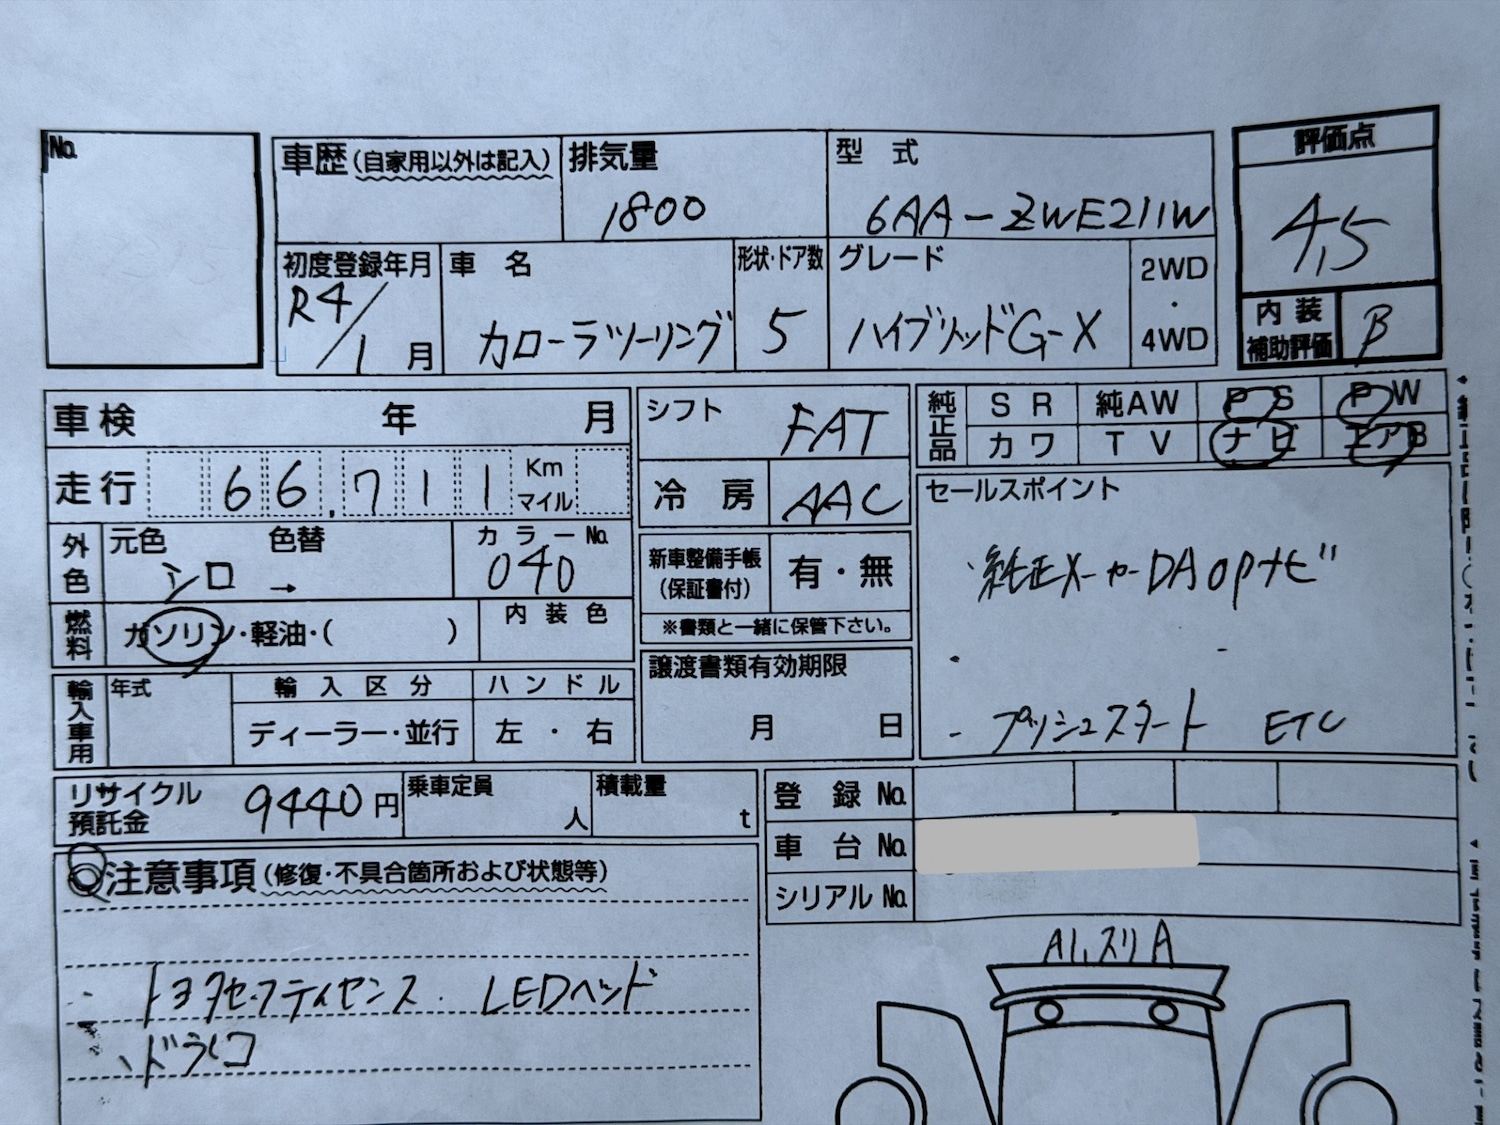 No.
車歴(自家用以外は記入)
排気量
1800
型式
6AA-ZWE211W
評価点
4.5
初度登録年月
R4/1月
車名
カローラツーリング
形状・ドア数
5
グレード
ハイブリッドG-X
2WD
・
4WD
内装
補助評価
B
車検 年 月
走行 66,711 Km
マイル
外色
元色 色替
シロ →
カラーNo.
040
燃料
ガソリン・軽油・( )
内装色
輸入車用
年式
輸入区分
ディーラー・並行
ハンドル
左・右
シフト
FAT
冷房
AAC
新車整備手帳
(保証書付)
有・無
※書類と一緒に保管下さい。
譲渡書類有効期限
月 日
純正品
SR 純AW PS PW
カワ TV ナビ エアB
セールスポイント
純正メーカーDAOPナビ
・プッシュスタート ETC
リサイクル
預託金
9440円
乗車定員
人
積載量
t
登録No.
車台No.
シリアルNo.
◎注意事項(修復・不具合箇所および状態等)
・トヨタセーフティセンス. LEDヘッド
、ドラレコ
A1,スリA